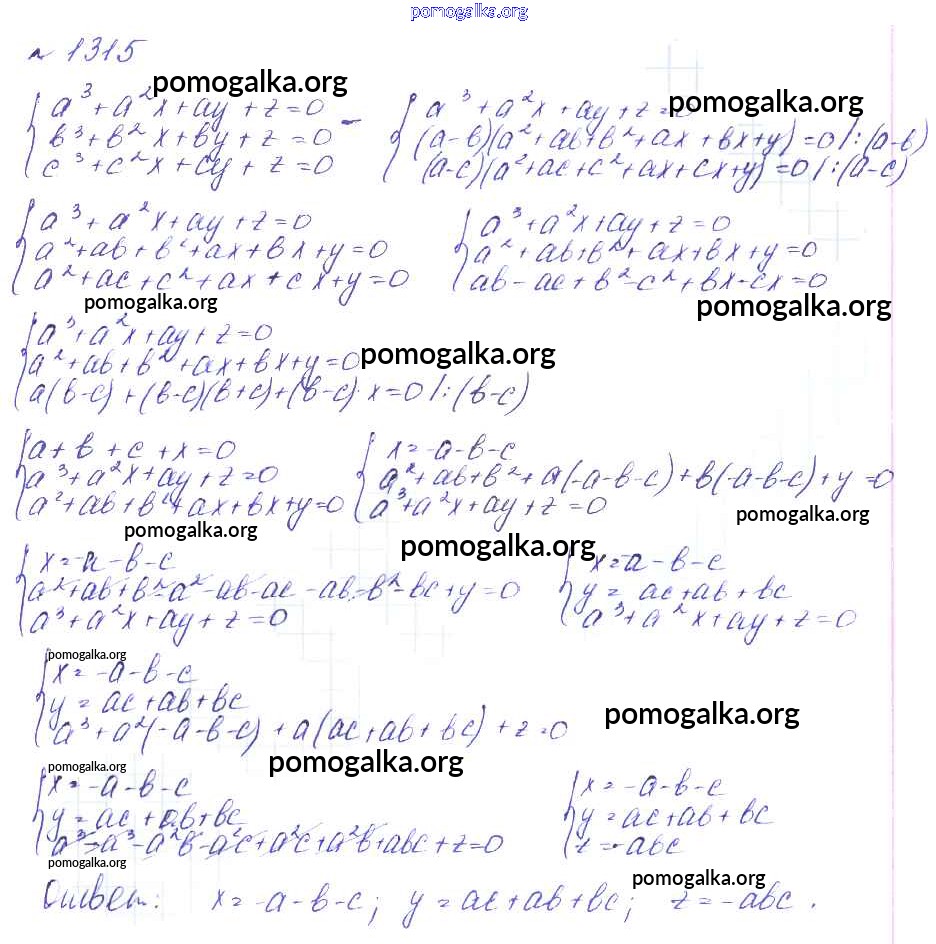 pomogalka.org
№ 1315
pomogalka.org
a³ + a²x + ay + z = 0
в³ + в²x + вy + z = 0
c³ + c²x + cy + z = 0
a³ + a²x + ay + z = 0
pomogalka.org
(a-b)(a² + ab + b² + ax + bx + y) = 0 /:(a-b)
(a-c)(a² + ac + c² + ax + cx + y) = 0 /:(a-c)
a³ + a²x + ay + z = 0
a² + ab + b² + ax + bx + y = 0
a² + ac + c² + ax + cx + y = 0
a³ + a²x + ay + z = 0
a² + ab + b² + ax + bx + y = 0
ab - ac + b² - c² + bx - cx = 0
pomogalka.org
pomogalka.org
a³ + a²x + ay + z = 0
a² + ab + b² + ax + bx + y = 0
a(b-c) + (b-c)(b+c) + (b-c)·x = 0 /:(b-c)
pomogalka.org
a + b + c + x = 0
a³ + a²x + ay + z = 0
a² + ab + b² + ax + bx + y = 0
x = -a-b-c
a² + ab + b² + a(-a-b-c) + b(-a-b-c) + y = 0
a³ + a²x + ay + z = 0
pomogalka.org
pomogalka.org
pomogalka.org
x = -a-b-c
a² + ab + b² - a² - ab - ac - ab - b² - bc + y = 0
a³ + a²x + ay + z = 0
x = -a-b-c
y = ac + ab + bc
a³ + a²x + ay + z = 0
pomogalka.org
x = -a-b-c
y = ac + ab + bc
a³ + a²(-a-b-c) + a(ac + ab + bc) + z = 0
pomogalka.org
pomogalka.org
pomogalka.org
x = -a-b-c
y = ac + ab + bc
a³ - a³ - a²b - a²c + a²c + a²b + abc + z = 0
x = -a-b-c
y = ac + ab + bc
z = -abc
pomogalka.org
pomogalka.org
Ответ: x = -a-b-c; y = ac + ab + bc; z = -abc.